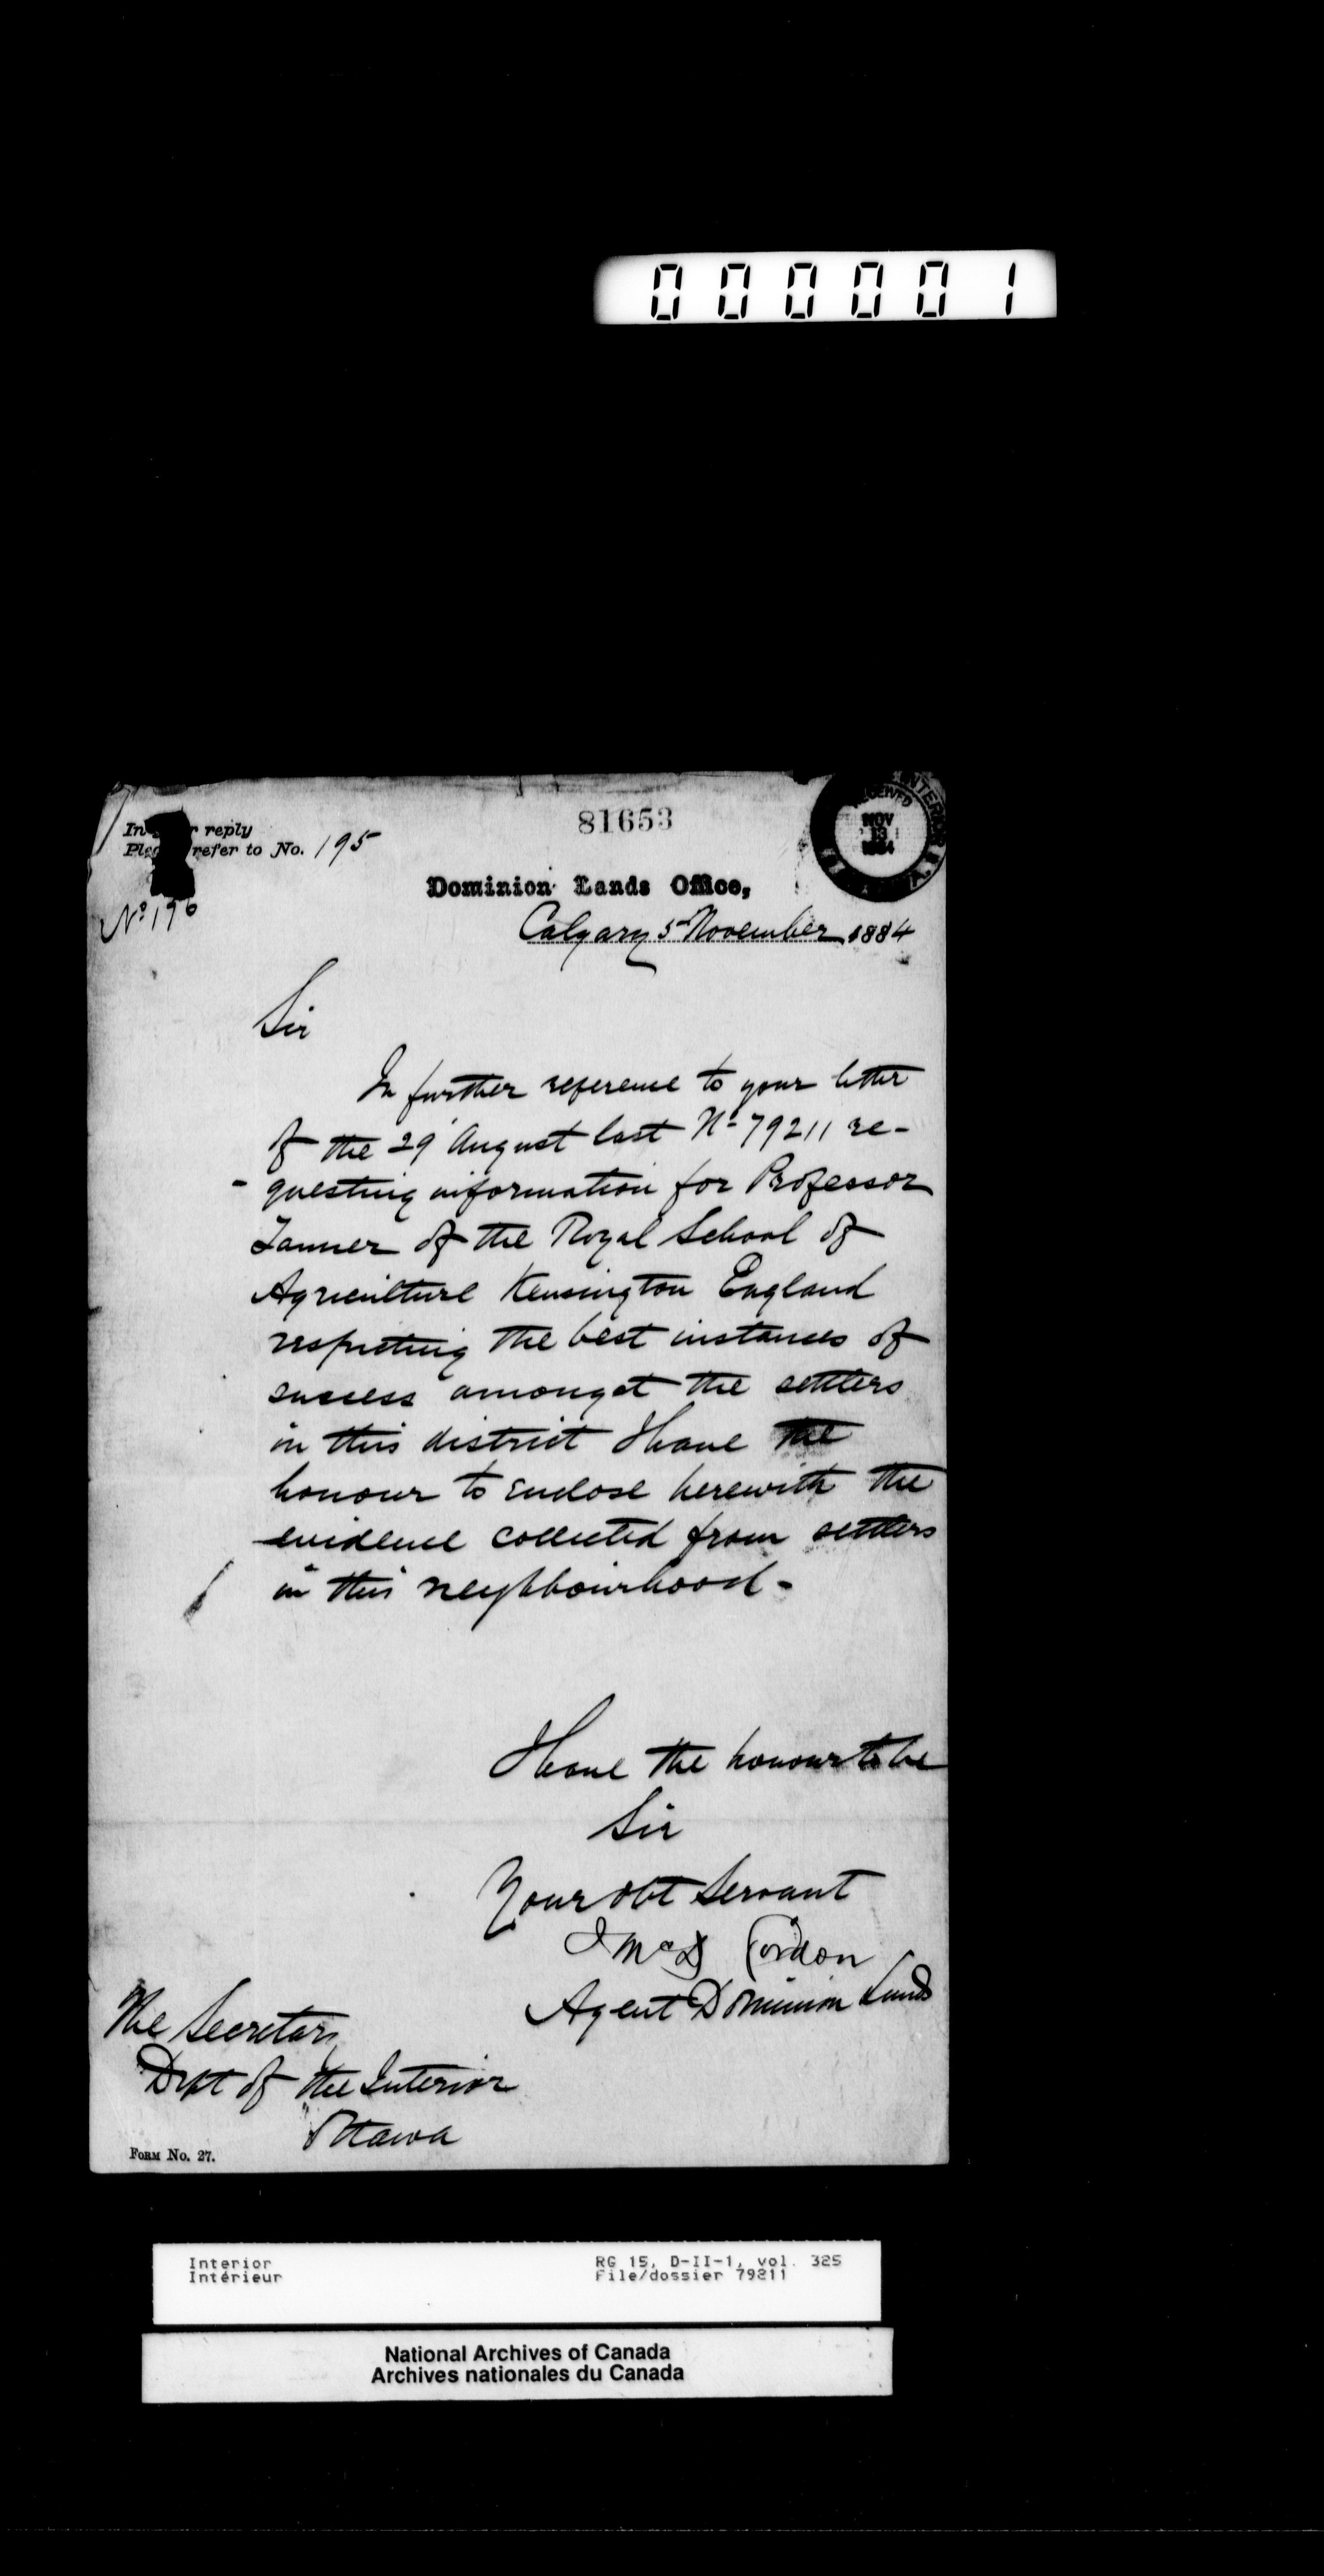 000001
In r reply
Plea refer to No. 195
81653
RECEIVED
INTERIOR
NOV
13
1884
Nº 196
Dominion Lands Office,
Calgary 5 November 1884
Sir
In further reference to your letter
of the 29 August last Nº 79211 re-
- questing information for Professor
Tanner of the Royal School of
Agriculture Kensington England
respecting the best instances of
success amongst the settlers
in this district I have the
honour to enclose herewith the
evidence collected from settlers
in this neighbourhood -
I have the honour to be
Sir
Your obt Servant
Gordon
Agent Dominion Lands
The Secretary
Dept of the Interior
Ottawa
FORM No. 27.
Interior RG 15, D-II-1, vol. 325
Intérieur File/dossier 79211
National Archives of Canada
Archives nationales du Canada